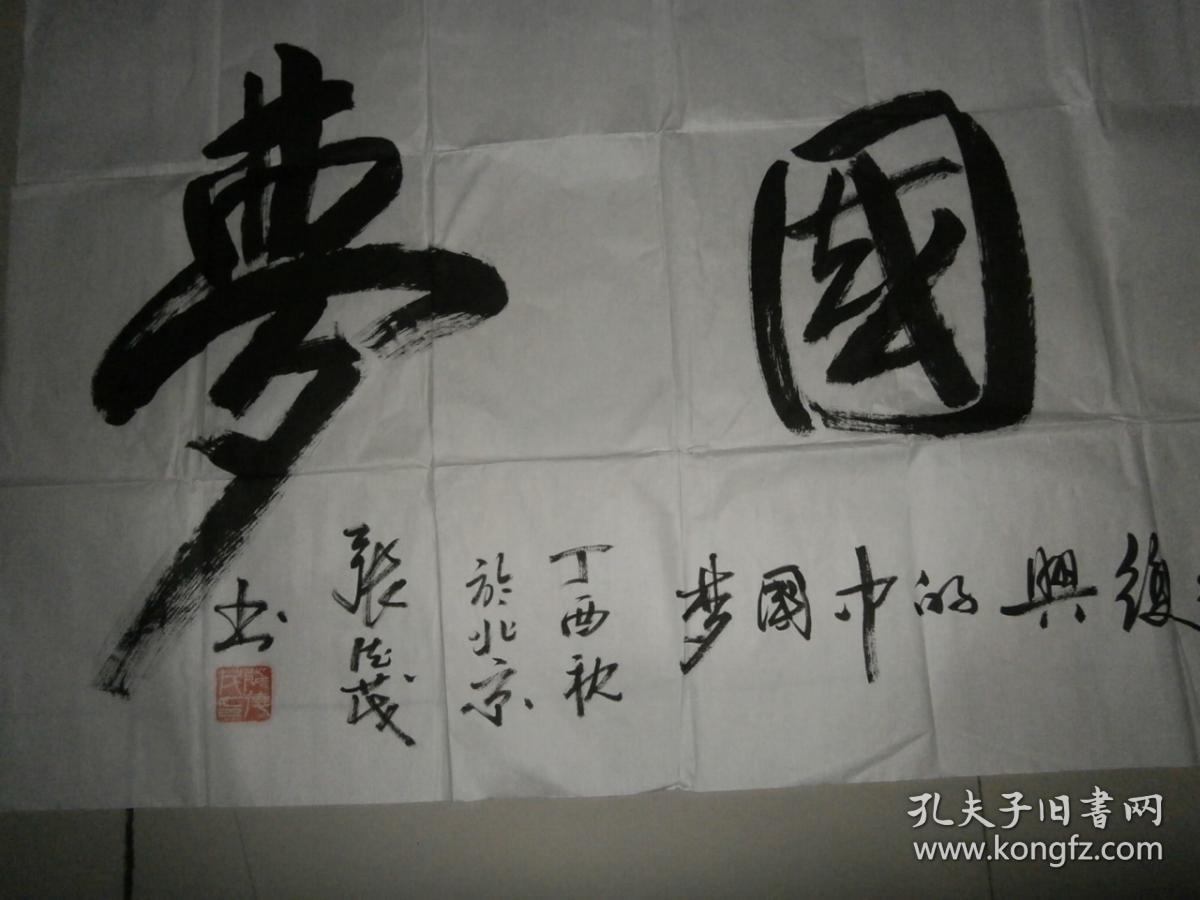 國夢
復興的中國梦
丁酉秋
於北京
張茂
书
孔夫子旧書网
www.kongfz.com